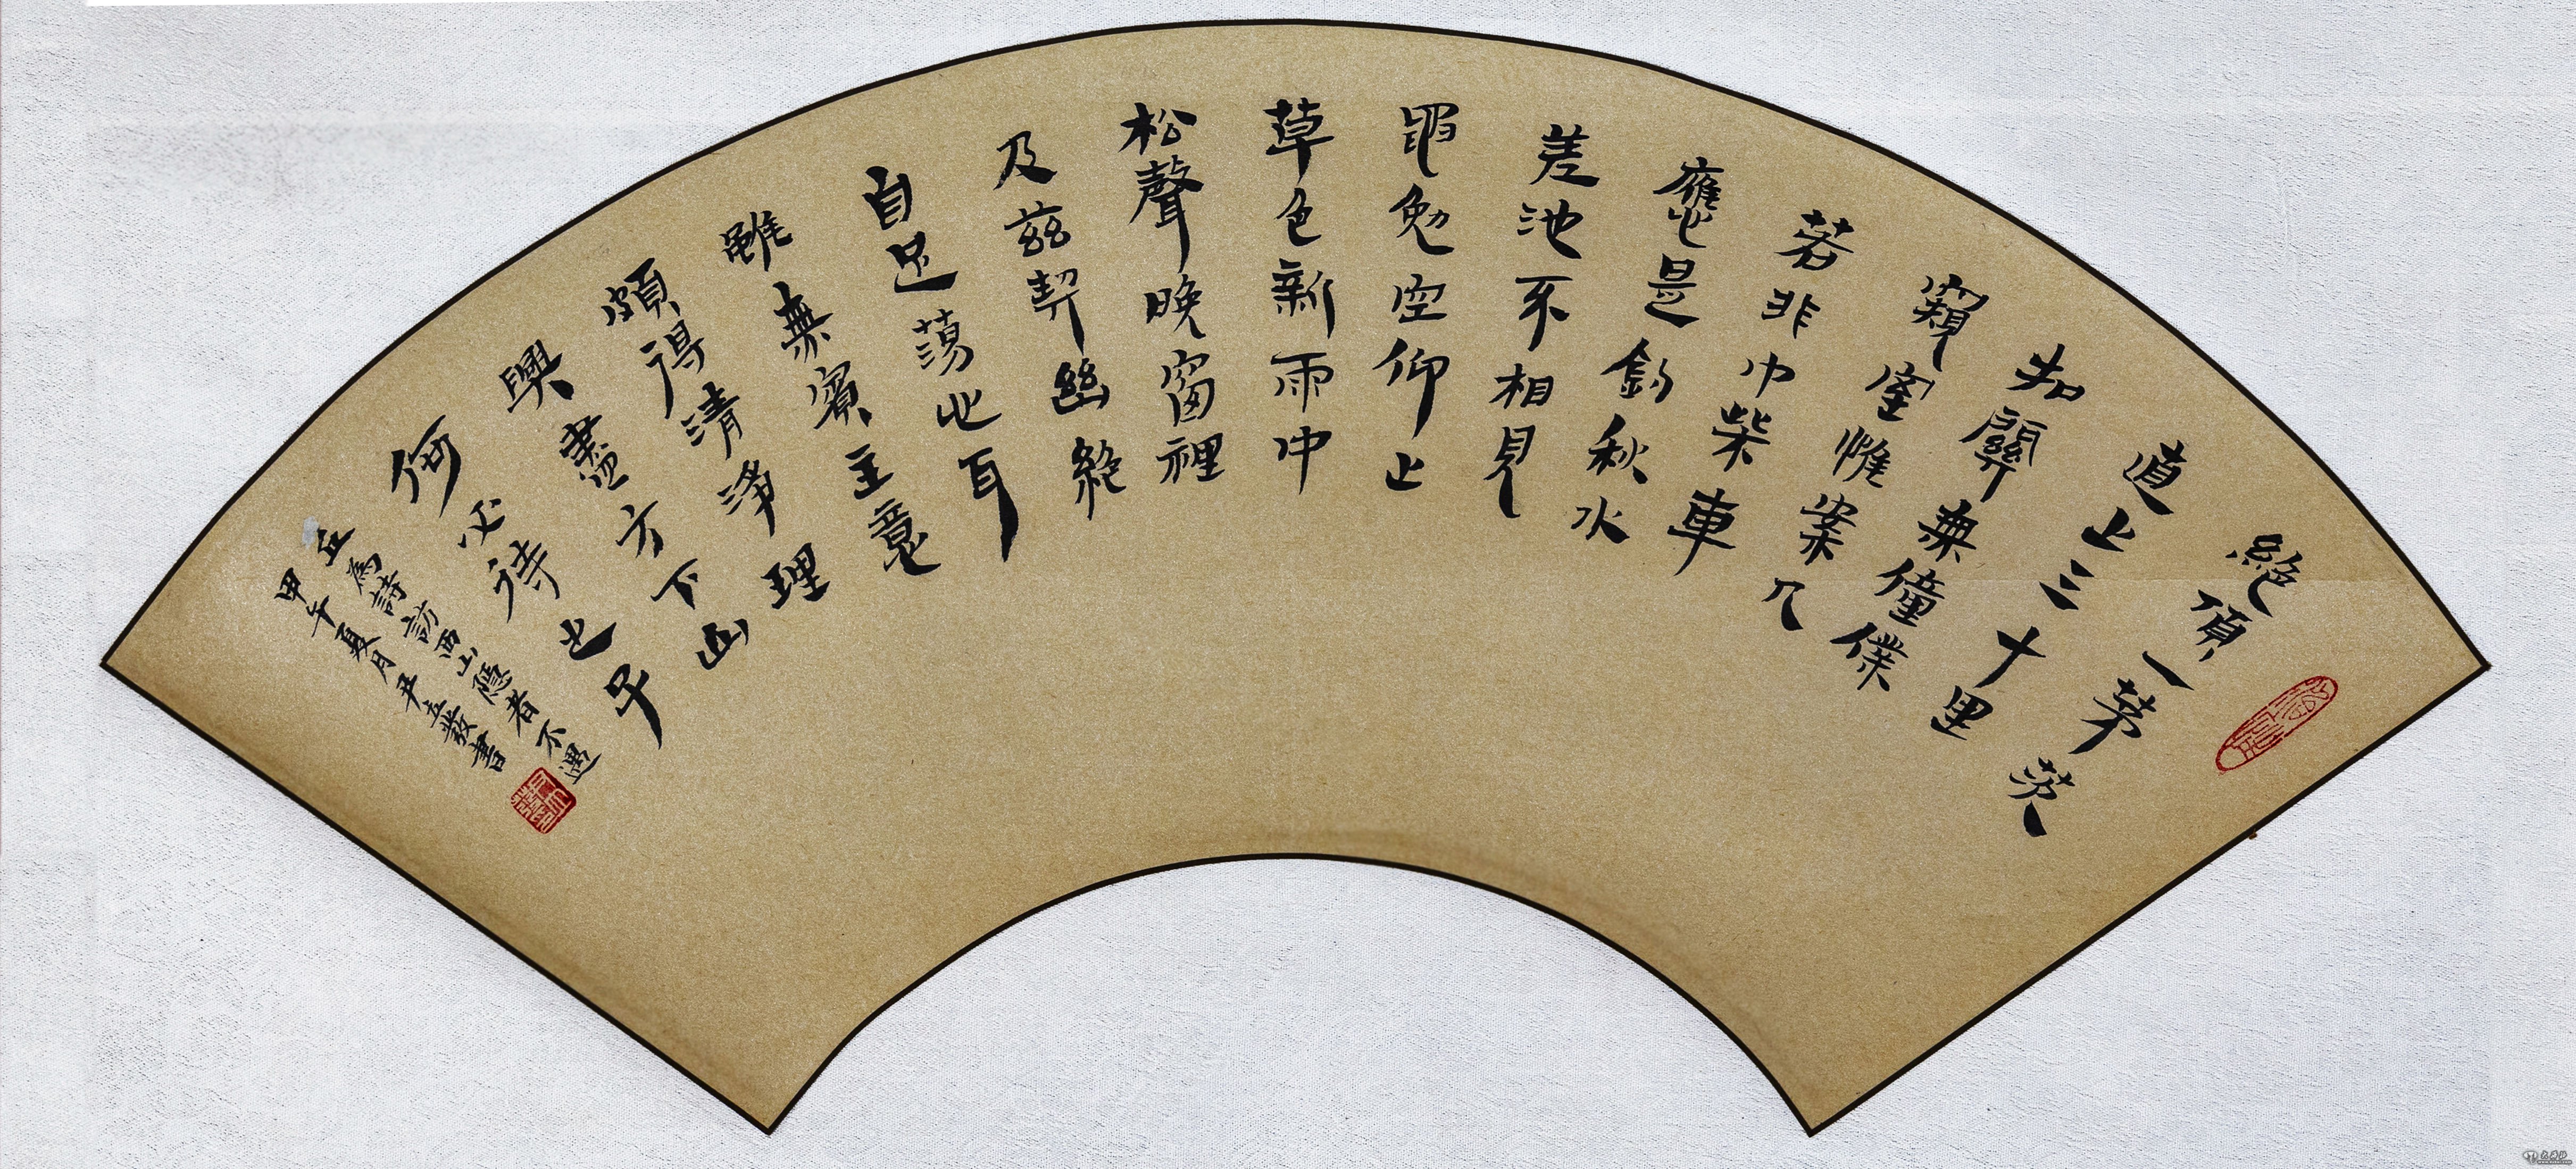 絕頂一茅茨
直上三十里
扣關無僮僕
窺室惟案几
若非巾柴車
應是釣秋水
差池不相見
黽勉空仰止
草色新雨中
松聲晚窗裡
及茲契幽絕
自足蕩心耳
雖無賓主意
頗得清淨理
興盡方下山
何必待之子
丘為詩訪西山隱者不遇
甲午夏月尹書